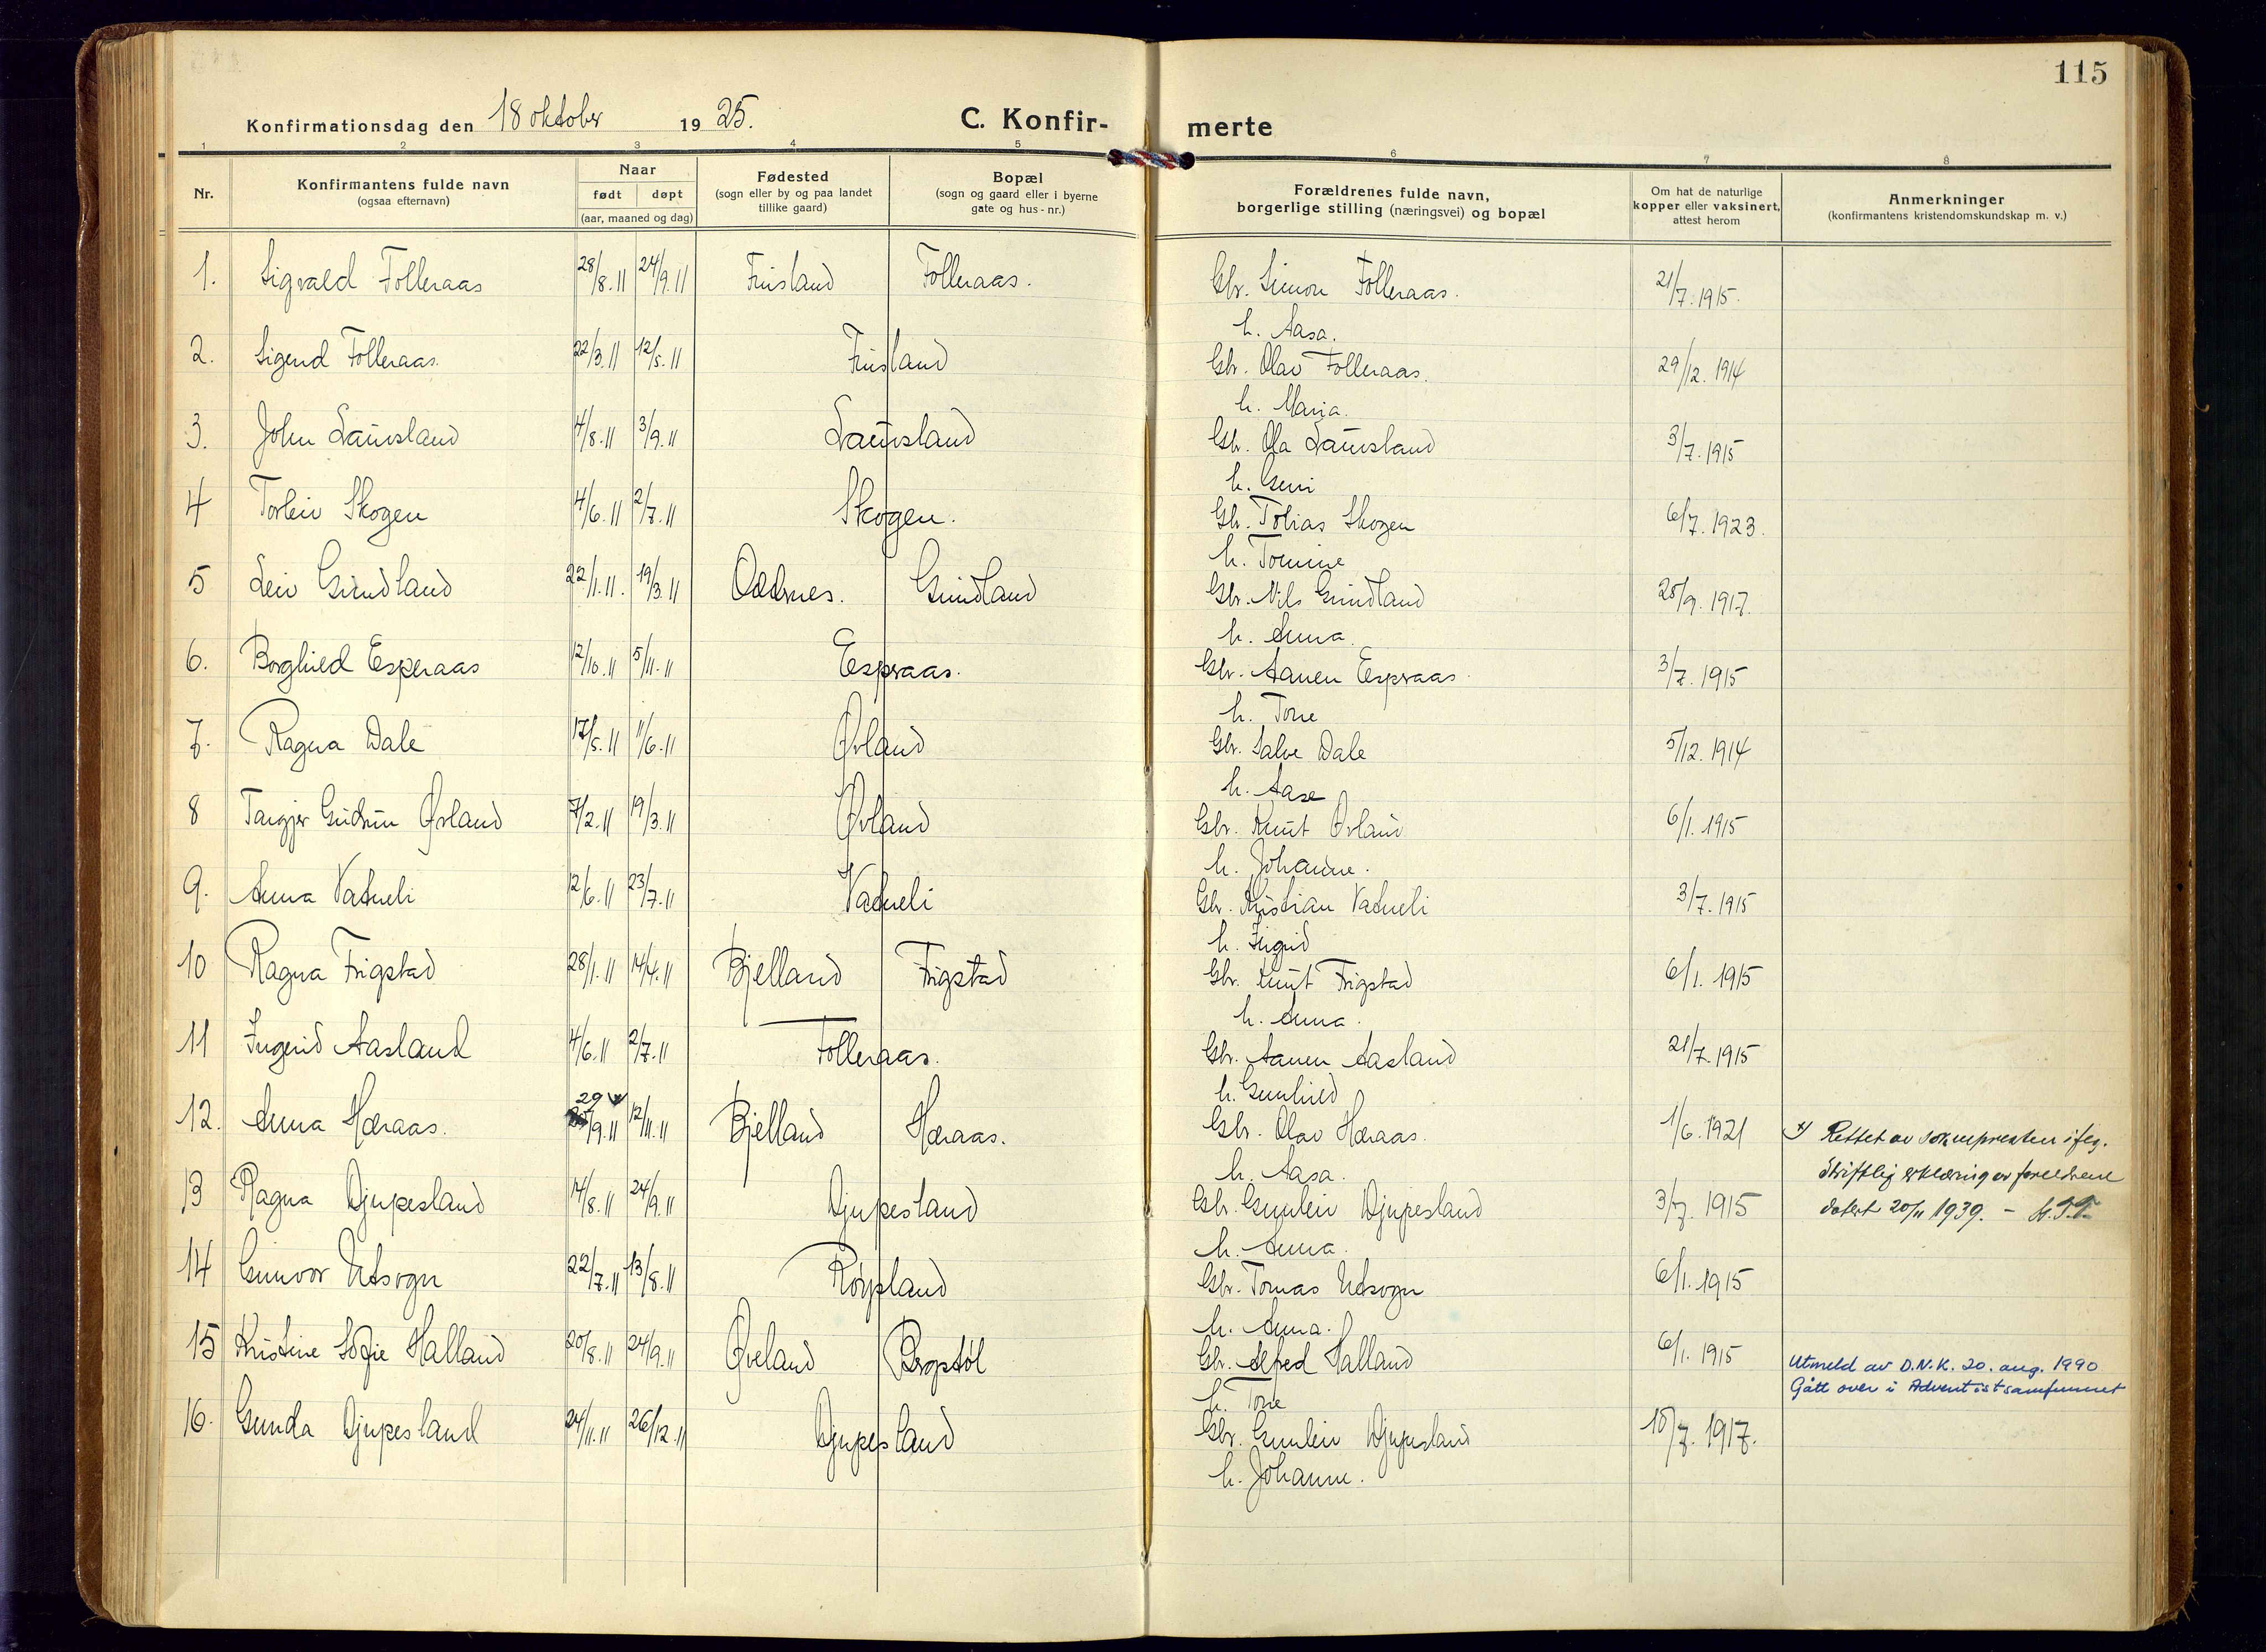 115
Konfirmationsdag den 18 oktober 1925.
C. Konfir- merte
1 2 3 4 5 6 7 8
Nr.
Konfirmantens fulde navn
(ogsaa efternavn)
Naar
født døpt
(aar, maaned og dag)
Fødested
(sogn eller by og paa landet
tillike gaard)
Bopæl
(sogn og gaard eller i byerne
gate og hus-nr.)
Forældrenes fulde navn,
borgerlige stilling (næringsvei) og bopæl
Om hat de naturlige
kopper eller vaksinert,
attest herom
Anmerkninger
(konfirmantens kristendomskundskap m. v.)
1. Sigvald Tolleraas 28/8.11 24/9.11 Finsland Tolleraas. Gbr. Simon Tolleraas. 21/7.1915.
h. Aasa.
2. Sigurd Tolleraas. 22/3.11 12/5.11 Finsland Gbr. Olav Tolleraas. 29/12.1914
h. Maria.
3. John Lauvsland 4/8.11 3/9.11 Lauvsland Gbr. Ola Lauvsland 3/7.1915
h. Guri
4 Torleiv Skogen 4/6.11 2/7.11 Skogen. Gbr. Tobias Skogen 6/7.1923.
h. Tomine
5 Leiv Grindland 22/1.11. 19/3.11 Oddernes. Grindland Gbr. Nils Grindland 25/9.1917.
h. Anna.
6. Borghild Esperaas 12/10.11 5/11.11 Espraas. Gbr. Aanen Espraas 3/7.1915
h. Tone
7. Ragna Dale 17/5.11 11/6.11 Øvland Gbr. Salve Dale 5/12.1914
h. Aase
8 Targjer Gudrun Øvland 7/2.11 19/3.11 Øvland Gbr. Knut Øvland 6/1.1915
h. Johanne.
9. Anna Vatneli 12/6.11 23/7.11 Vatneli Gbr. Kristian Vatneli 3/7.1915
h. Ingrid
10 Ragna Frigstad 28/1.11 14/4.11 Bjelland Frigstad Gbr. Knut Frigstad 6/1.1915
h. Anna.
11 Ingerid Aasland 4/6.11 2/7.11 Tolleraas. Gbr. Aanen Aasland 21/7.1915
h. Gunhild
12. Anna Heraas. 29 x /9.11 12/11.11 Bjelland Heraas. Gbr. Olav Heraas. 1/6.1921 x) Rettet av soknepresten ifлg.
h. Aasa. Skriftlig erklæring av foreldrene
13 Ragna Djupesland 14/8.11 24/9.11 Djupesland Gbr. Gunleiv Djupesland 3/7.1915 datert 20/11 1939. -
h. Anna.
14 Gunvor Utsogn 22/7.11 13/8.11 Røysland Gbr. Tomas Utsogn 6/1.1915
h. Anna.
15 Kristine Sofie Halland 20/8.11 24/9.11 Øveland Bergstøl Gbr. Alfred Halland 6/1.1915 Utmeld av D.N.K. 20. aug. 1990
h. Tone Gått over i Adventistsamfunnet
16. Gunda Djupesland 24/11.11 26/12.11 Djupesland Gbr. Gunleiv Djupesland 15/7.1917.
h. Johanne.